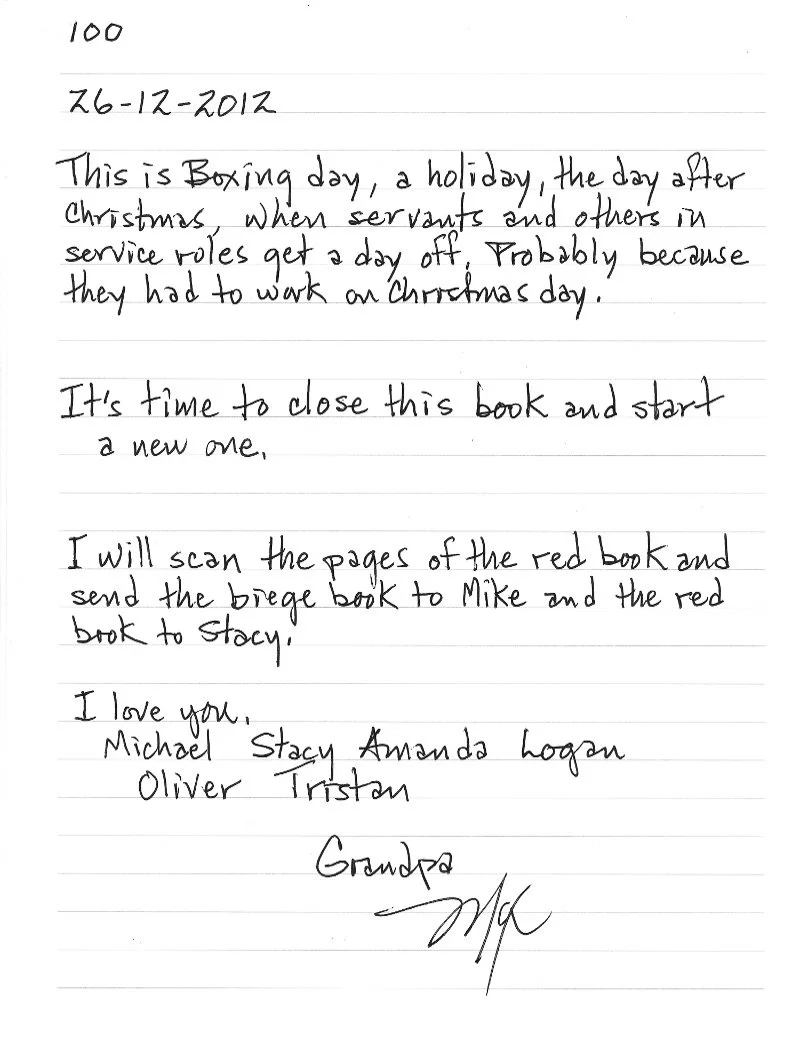 100
26-12-2012
This is Boxing day, a holiday, the day after
Christmas, when servants and others in
service roles get a day off. Probably because
they had to work on Christmas day.
It's time to close this book and start
a new one.
I will scan the pages of the red book and
send the biege book to Mike and the red
book to Stacy.
I love you.
Michael Stacy Amanda Logan
Oliver Tristan
Grandpa